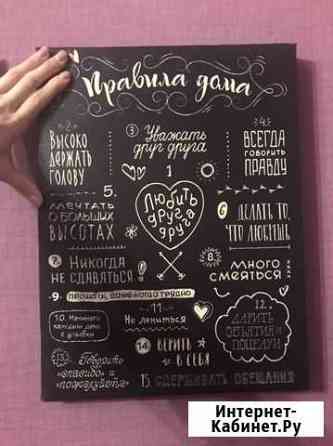 Правила дома
·2·
Высоко
держать
голову
3 Уважать
друг друга
·4·
Всегда
говорить
правду
1
Любить
друг
друга
5.
мечтать
о больших
высотах
6 делать то,
что любишь
7. Никогда
не сдаваться!
8.
много
смеяться
9
10. Начинать
каждый день
с улыбки
11
Не лениться
12.
Дарить
объятия и
поцелуи
13. Говорить
«спасибо» и
«пожалуйста»
14 верить
в себя
15. сдерживать обещания
Интернет-
Кабинет.Ру